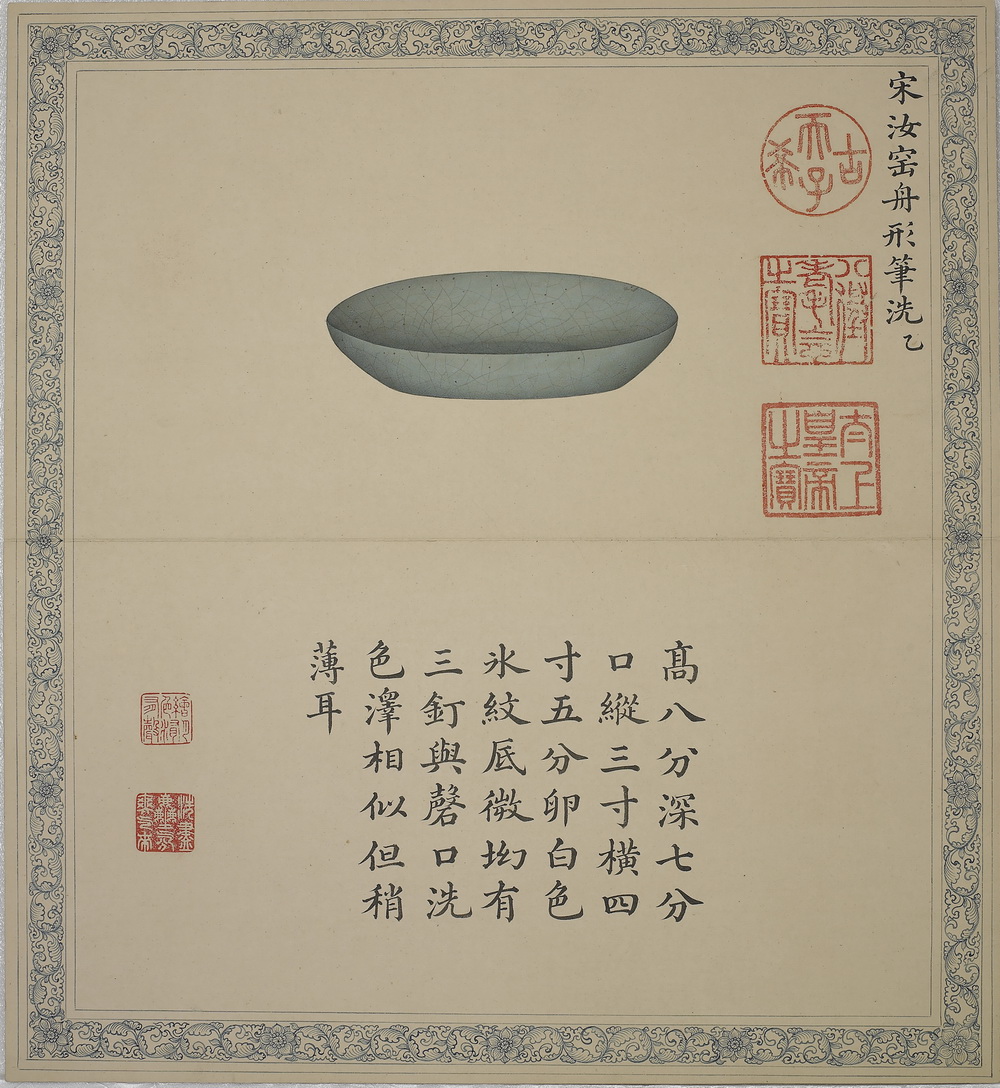 宋汝窑舟形筆洗乙
古希天子
八徵耄念之寶
太上皇帝之寶
髙八分深七分
口縱三寸橫四
寸五分卵白色
氷紋底微坳有
三釘與磬口洗
色澤相似但稍
薄耳
洗盡塵氛爽氣來